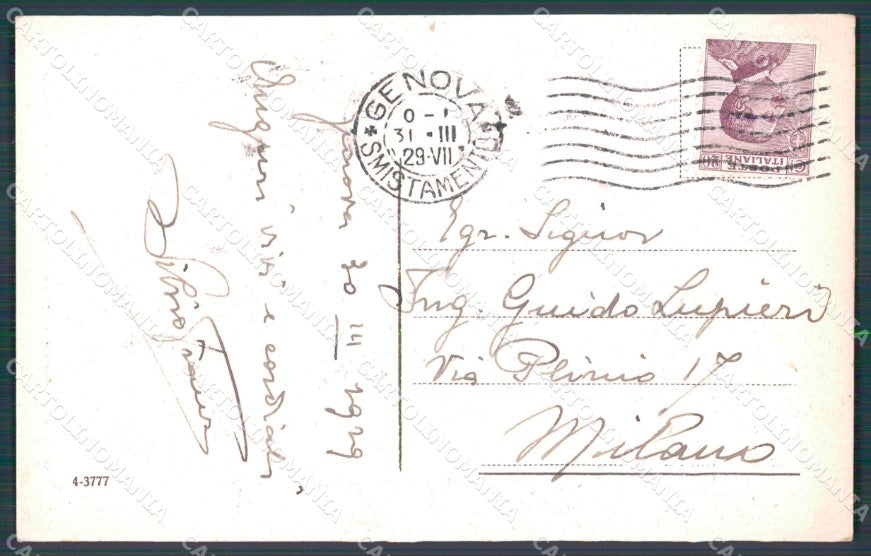 Genova 30 III 1929
Auguri vivi e cordiali
GENOVA
SMISTAMENTO
31 · III
29 · VII
POSTE
ITALIANE
20
Egr. Signor
Ing. Guido Lupieri
Via Plinio 17
Milano
4-3777
CARTOLINOMANIA